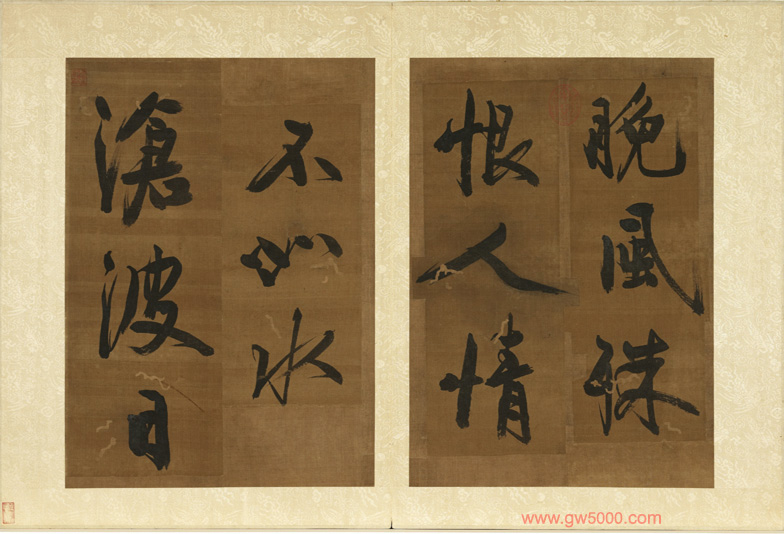 晚風殊
恨人情
不水
滄波日
www.gw5000.com